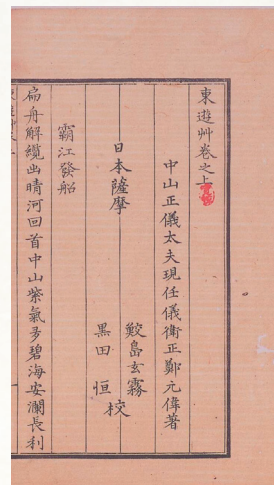 東遊艸卷之上
中山正儀太夫現任儀衛正鄭元偉著
日本薩摩
鮫島玄霧
黒田恒
校
霸江發船
扁舟解纜出晴河回首中山紫氣多碧海安瀾長利